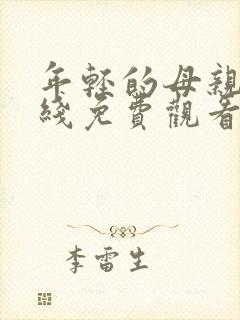 年轻的母親
綫免費觀看
李雷生